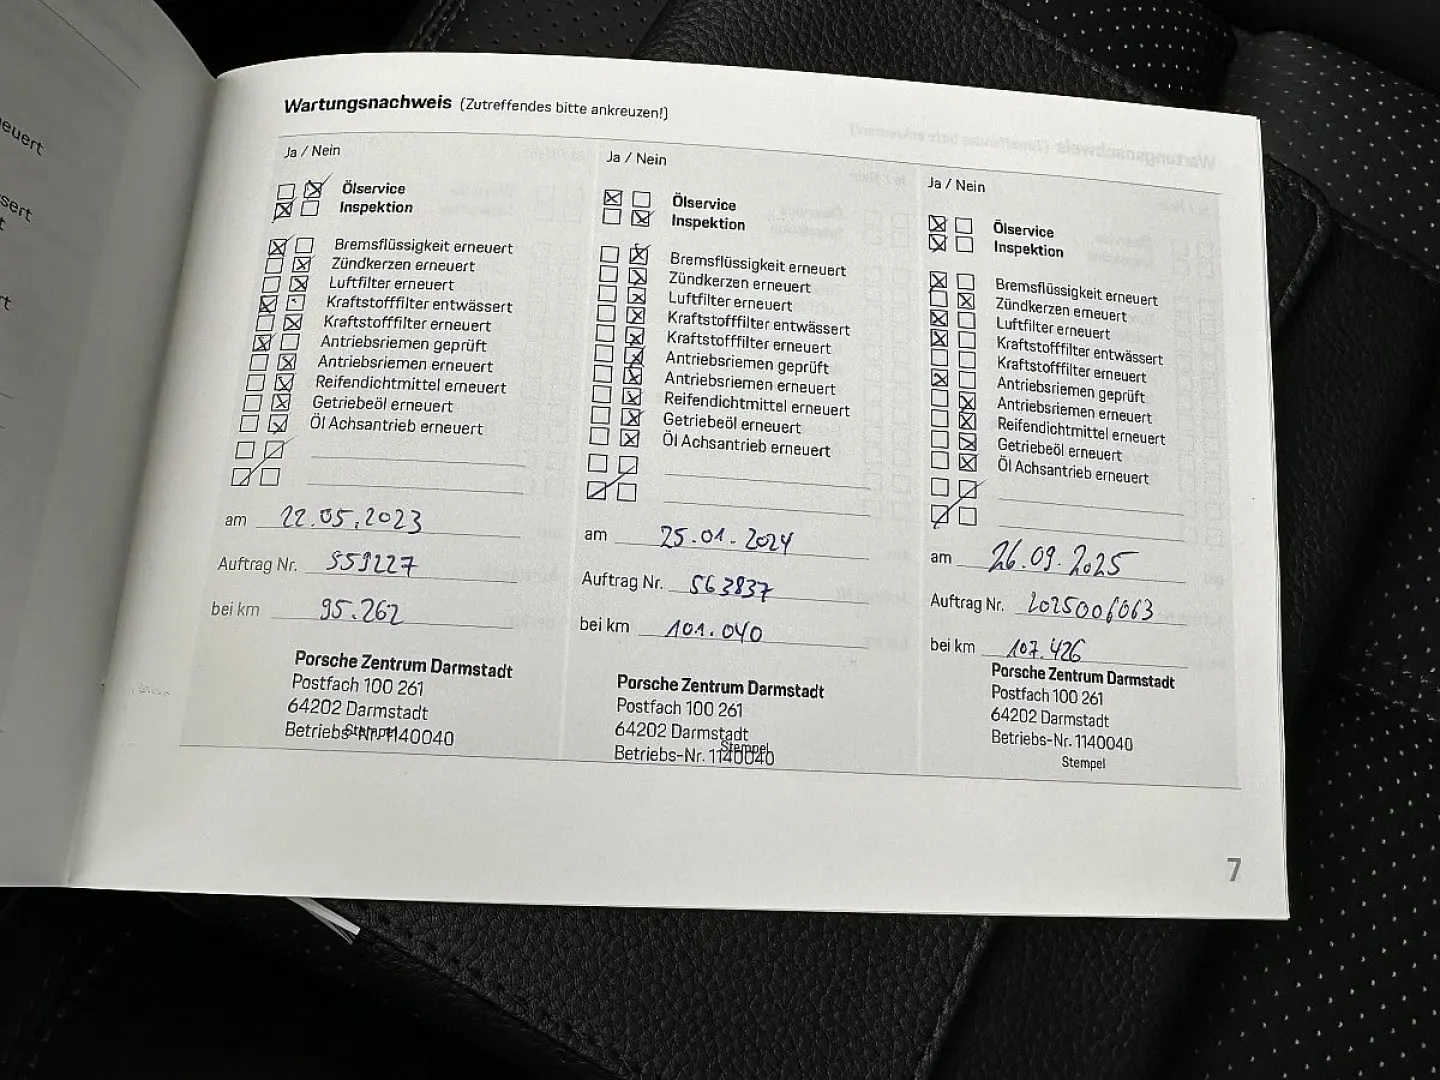 euert
sert
t
rt
Wartungsnachweis (Zutreffendes bitte ankreuzen!)
Ja / Nein
Ölservice
Inspektion
Bremsflüssigkeit erneuert
Zündkerzen erneuert
Luftfilter erneuert
Kraftstofffilter entwässert
Kraftstofffilter erneuert
Antriebsriemen geprüft
Antriebsriemen erneuert
Reifendichtmittel erneuert
Getriebeöl erneuert
Öl Achsantrieb erneuert
am 22.05.2023
Auftrag Nr. 559227
bei km 95.262
Porsche Zentrum Darmstadt
Postfach 100 261
64202 Darmstadt
Betriebs-Nr. 1140040
Stempel
Ja / Nein
Ölservice
Inspektion
Bremsflüssigkeit erneuert
Zündkerzen erneuert
Luftfilter erneuert
Kraftstofffilter entwässert
Kraftstofffilter erneuert
Antriebsriemen geprüft
Antriebsriemen erneuert
Reifendichtmittel erneuert
Getriebeöl erneuert
Öl Achsantrieb erneuert
am 25.01.2024
Auftrag Nr. 563837
bei km 101.040
Porsche Zentrum Darmstadt
Postfach 100 261
64202 Darmstadt
Stempel
Betriebs-Nr. 1140040
Ja / Nein
Ölservice
Inspektion
Bremsflüssigkeit erneuert
Zündkerzen erneuert
Luftfilter erneuert
Kraftstofffilter entwässert
Kraftstofffilter erneuert
Antriebsriemen geprüft
Antriebsriemen erneuert
Reifendichtmittel erneuert
Getriebeöl erneuert
Öl Achsantrieb erneuert
am 26.09.2025
Auftrag Nr. 2025006063
bei km 107.426
Porsche Zentrum Darmstadt
Postfach 100 261
64202 Darmstadt
Betriebs-Nr. 1140040
Stempel
7